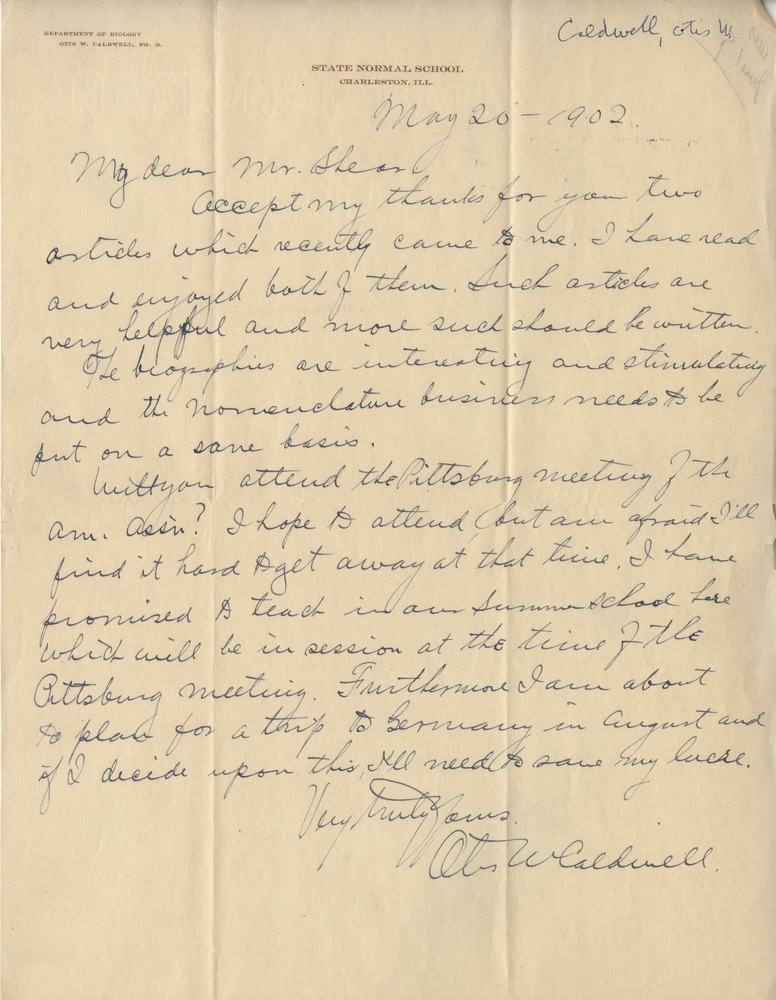 DEPARTMENT OF BIOLOGY
OTIS W. CALDWELL, PH. D.
Caldwell, Otis W.
STATE NORMAL SCHOOL
CHARLESTON, ILL.
May 20 - 1902.
My dear Mr. Shear
Accept my thanks for your two
articles which recently came to me. I have read
and enjoyed both of them. Such articles are
very helpful and more such should be written.
The biographies are interesting and stimulating
and the nomenclature business needs to be
put on a sane basis.
Will you attend the Pittsburg meeting of the
Am. Assn? I hope to attend, but am afraid I'll
find it hard to get away at that time. I have
promised to teach in our Summer School here
which will be in session at the time of the
Pittsburg meeting. Furthermore I am about
to plan for a trip to Germany in August and
if I decide upon this, I'll need to save my lucre.
Very truly yours.
Otis W Caldwell.